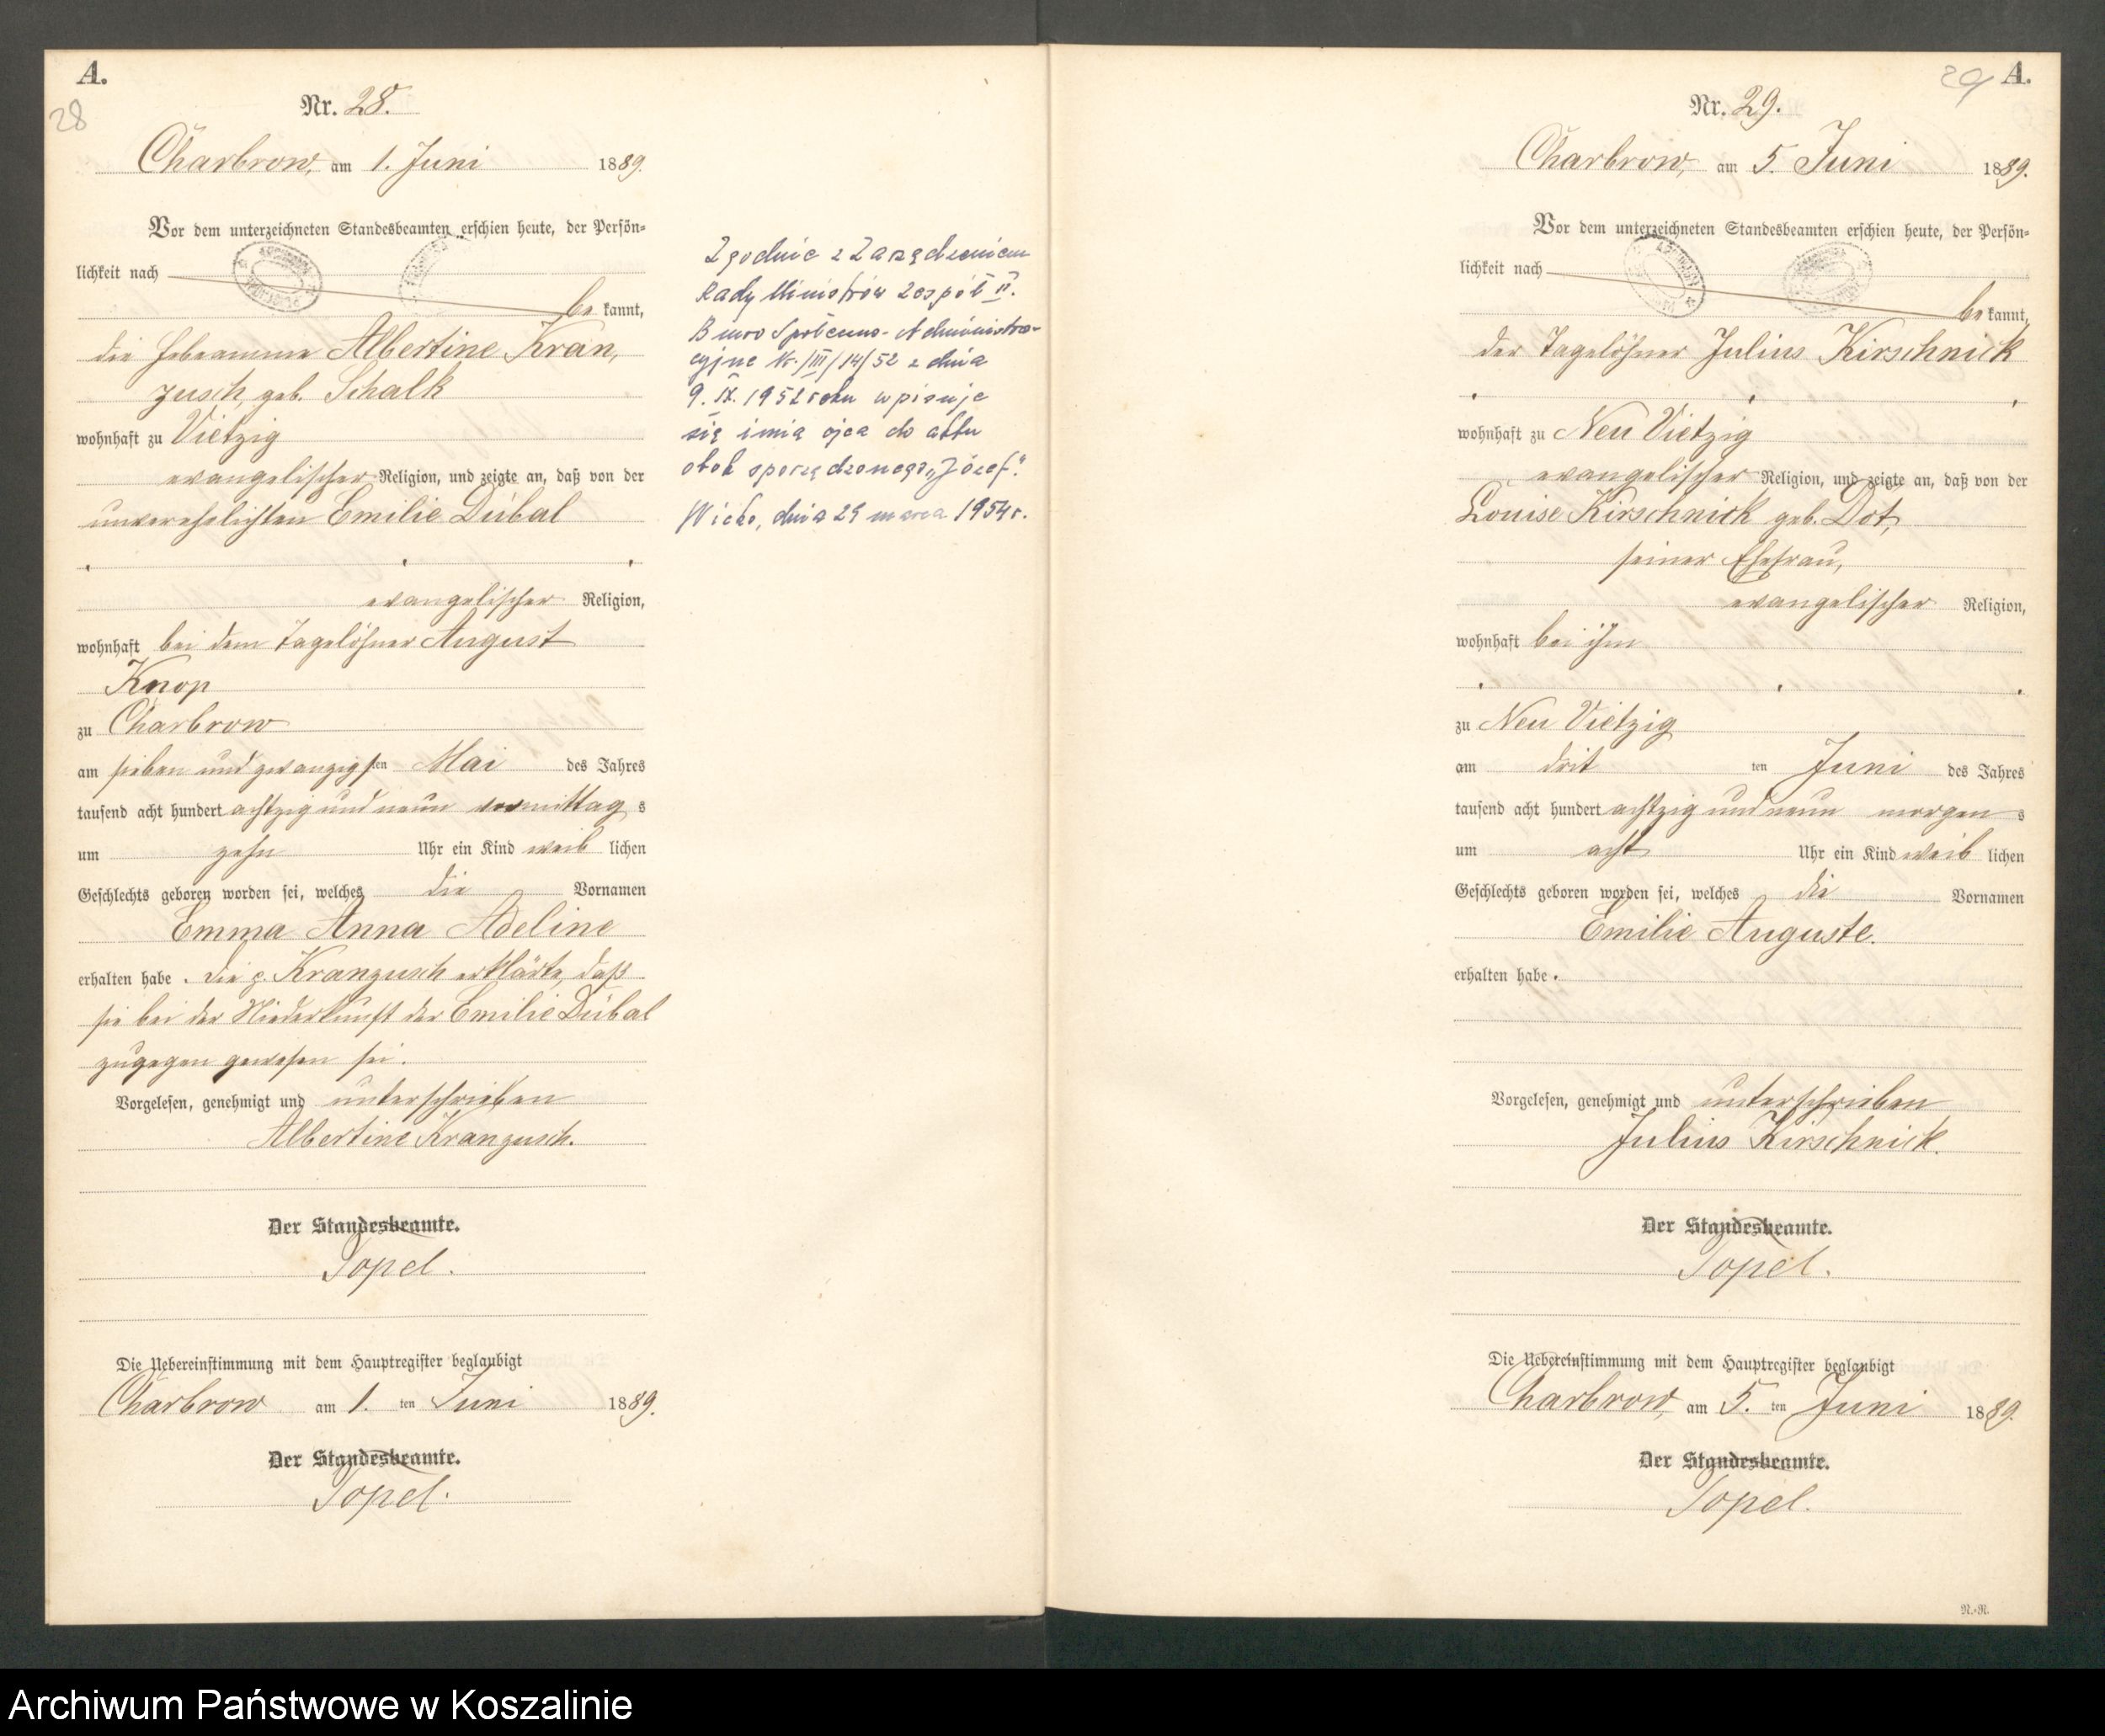 A.
28
Nr. 28.
Charbrow, am 1. Juni 1889.
Vor dem unterzeichneten Standesbeamten erschien heute, der Persön-
lichkeit nach
be kannt,
die Hebeamme Albertine Kran,
zusch, geb. Schalk
wohnhaft zu Vietzig
evangelischer Religion, und zeigte an, daß von der
unverehelichten Emilie Dübal
evangelischer Religion,
wohnhaft bei dem Tagelöhner August
Knop
zu Charbrow
am sieben und zwanzigsten Mai des Jahres
tausend acht hundert achtzig und neun vormittag s
um zehn Uhr ein Kind weib lichen
Geschlechts geboren worden sei, welches die Vornamen
Emma Anna Adeline
erhalten habe. Die p. Kranzusch erklärte, daß
sie bei der Niederkunft der Emilie Dübal
zugegen gewesen sei.
Vorgelesen, genehmigt und unterschrieben
Albertine Kranzusch.
Der Standesbeamte.
Topel.
Die Uebereinstimmung mit dem Hauptregister beglaubigt
Charbrow am 1. ten Juni 1889.
Der Standesbeamte.
Topel.
Zgodnie z Zarządzeniem
Rady Ministrów Zespół II.
Biuro Społeczno-Administra-
cyjne Nr./III/14/52 z dnia
9. IX. 1952 roku wpisuje
się imię ojca do aktu
obok sporządzonego „Józef".
Wicko, dnia 29 marca 1954 r.
29 A.
Nr. 29.
Charbrow, am 5. Juni 1889.
Vor dem unterzeichneten Standesbeamten erschien heute, der Persön-
lichkeit nach
be kannt,
der Tagelöhner Julius Kirschnick
wohnhaft zu Neu Vietzig
evangelischer Religion, und zeigte an, daß von der
Louise Kirschnick geb. Dot,
seiner Ehefrau,
evangelischer Religion,
wohnhaft bei ihm
zu Neu Vietzig
am drit ten Juni des Jahres
tausend acht hundert achtzig und neun morgen s
um acht Uhr ein Kind weib lichen
Geschlechts geboren worden sei, welches die Vornamen
Emilie Auguste.
erhalten habe.
Vorgelesen, genehmigt und unterschrieben
Julius Kirschnick.
Der Standesbeamte.
Topel.
Die Uebereinstimmung mit dem Hauptregister beglaubigt
Charbrow, am 5. ten Juni 1889.
Der Standesbeamte.
Topel.
N.-N.
Archiwum Państwowe w Koszalinie